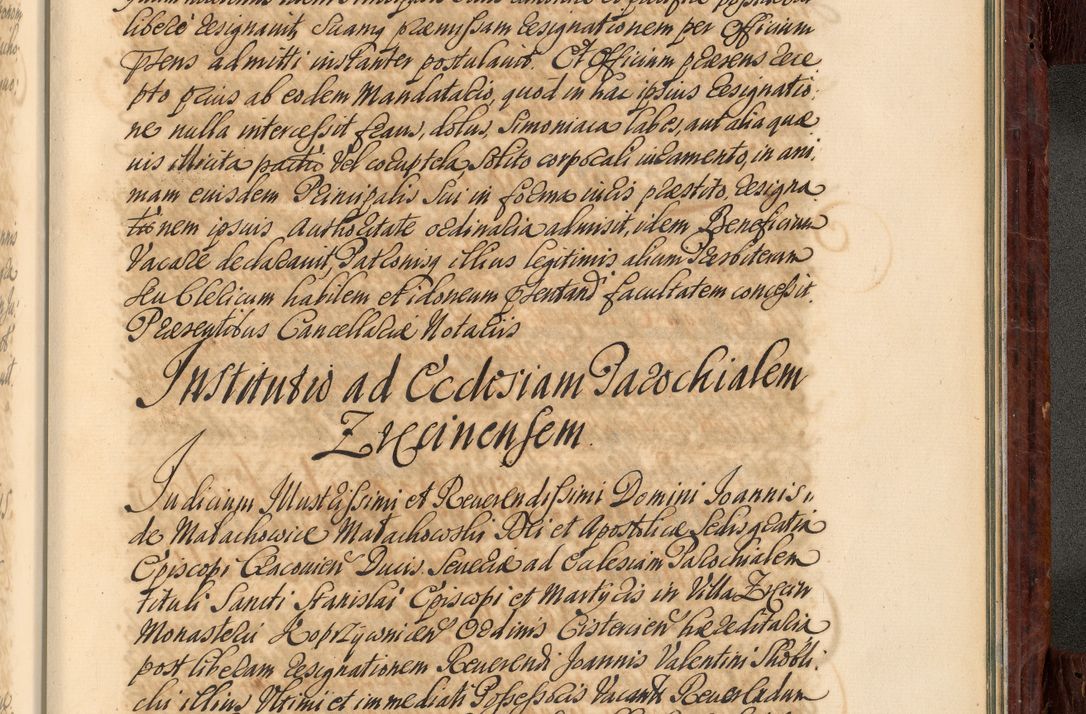 liberè designavit, Suamq præmissam designationem per Officium
ptens admitti instanter postulavit. Et Officium præsens rece
pto prius ab eodem Mandatario, quod in hac ipsius designatio:
ne nulla intercessit fraus, dolus, Simoniaca labes, aut alia quæ
vis illicita pactio vel corruptela, solito corporali iuramento, in ani
mam eiusdem Principalis sui in forma iuris præstito, designa
tionem ipsius Authoritate ordinaria admisit, idem Beneficium
Vacare declaravit, Patronisq illius legitimis alium Præsbiterum
seu Clericum habilem et idoneum ptentandi facultatem concessit.
Præsentibus Cancellariæ Notariis
Institutio ad Ecclesiam Parochialem
Zrecinensem.
Judicium Illustrissimi et Reverendissimi Domini Joannis
de Małachowice Małachowski Dei et Apostolicæ Sedis gratia
Episcopi Cracovien Ducis Severiæ ad Ecclesiam Parochialem
tituli Sancti Stanislai Episcopi et Martyris in Villa Zrecin
Monasterii Koprzywnicen Ordinis Cistercien hæreditaria
post liberam designationem Reverendi Joannis Valentini
illius Ultimi et immediati Possessoris Vacantē Reverendum